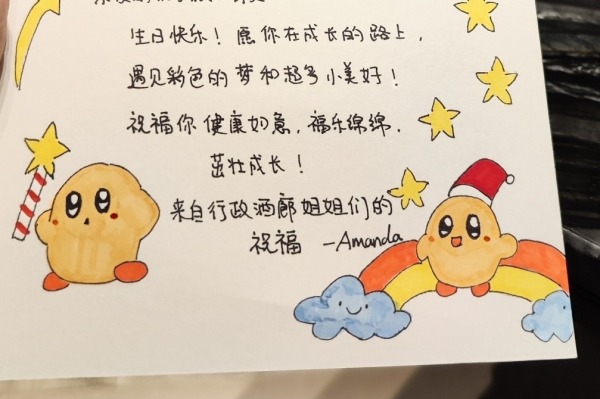 生日快乐！愿你在成长的路上，
遇见彩色的梦和超多小美好！
祝福你健康如意，福乐绵绵，
茁壮成长！
来自行政酒廊姐姐们的
祝福 -Amanda